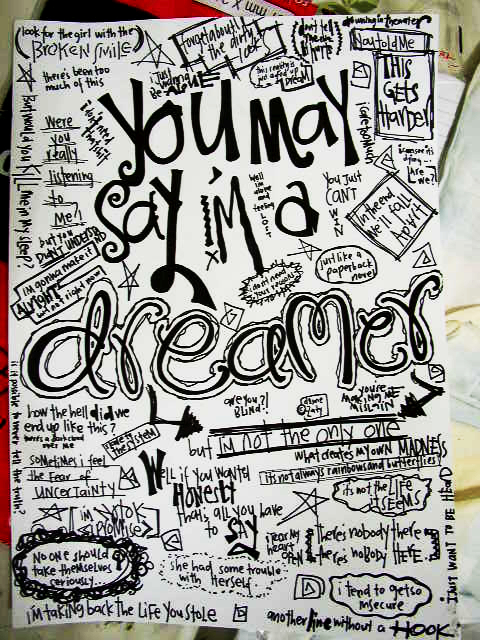 look for the girl with the
BROKEN SMILE
there's been too
much of this
Just wanna
BE ALONE
Forget about
the dirty
looks
drowning in the water
You told Me
THIS
GETS
HARDER
YOU MAY
SAY I'M A
dreamer
But would you
Were
you
really
listening
to
Me?
but you
DIDN'T UNDERSTAND
i'm gonna make it
ALRIGHT
but not right now
Well
i'm
alone
and
feeling
LOST
YOU JUST
CAN'T
WIN
Are
we?
in the end
We'll fall
APART
just like a
paperback
novel
i don't need
your reasons
how the hell did we
end up like this?
there's a dark cloud
over me
sometimes i feel
the fear of
UNCERTAINTY
are you?!
BLIND?!
you're
MAKING ME
but i'm not the only one
What creates my own MADNESS
its not always rainbows and butterflies
Well if you wanted
HONESTY
that's all you have
to SAY
its not the life
it SEEMS
i'm NOT OK
i PROMISE
theres nobody there
theres nobody HERE
I JUST WANT TO BE
No one should
take themselves
seriously...
she had some trouble
with herself...
i tend to get so
insecure
i'm taking back the life you stole
another line without a HOOK